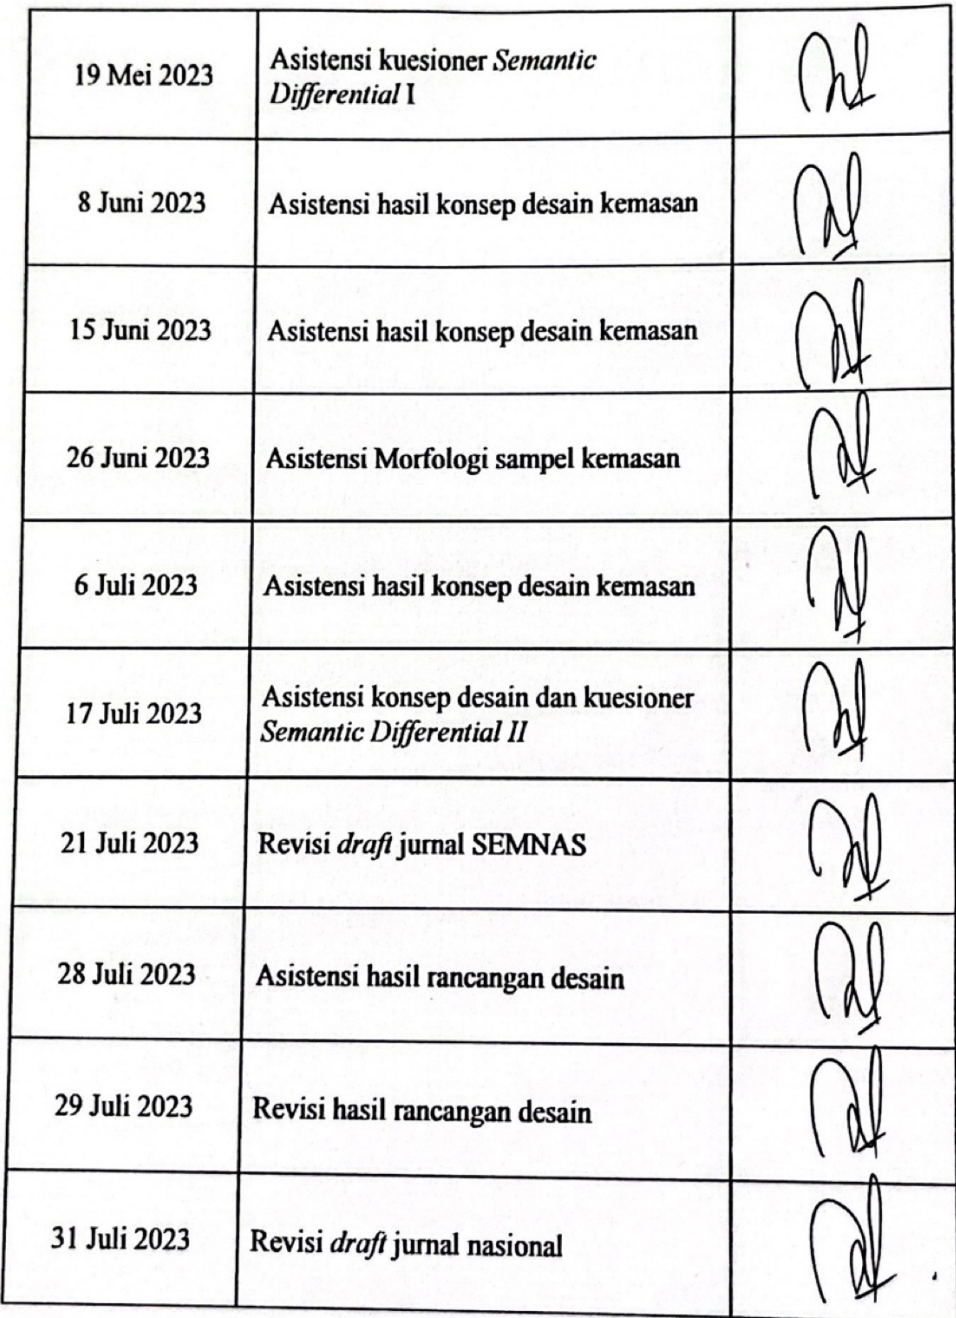 19 Mei 2023
Asistensi kuesioner Semantic
Differential I
8 Juni 2023
Asistensi hasil konsep desain kemasan
15 Juni 2023
Asistensi hasil konsep desain kemasan
26 Juni 2023
Asistensi Morfologi sampel kemasan
6 Juli 2023
Asistensi hasil konsep desain kemasan
17 Juli 2023
Asistensi konsep desain dan kuesioner
Semantic Differential II
21 Juli 2023
Revisi draft jurnal SEMNAS
28 Juli 2023
Asistensi hasil rancangan desain
29 Juli 2023
Revisi hasil rancangan desain
31 Juli 2023
Revisi draft jurnal nasional